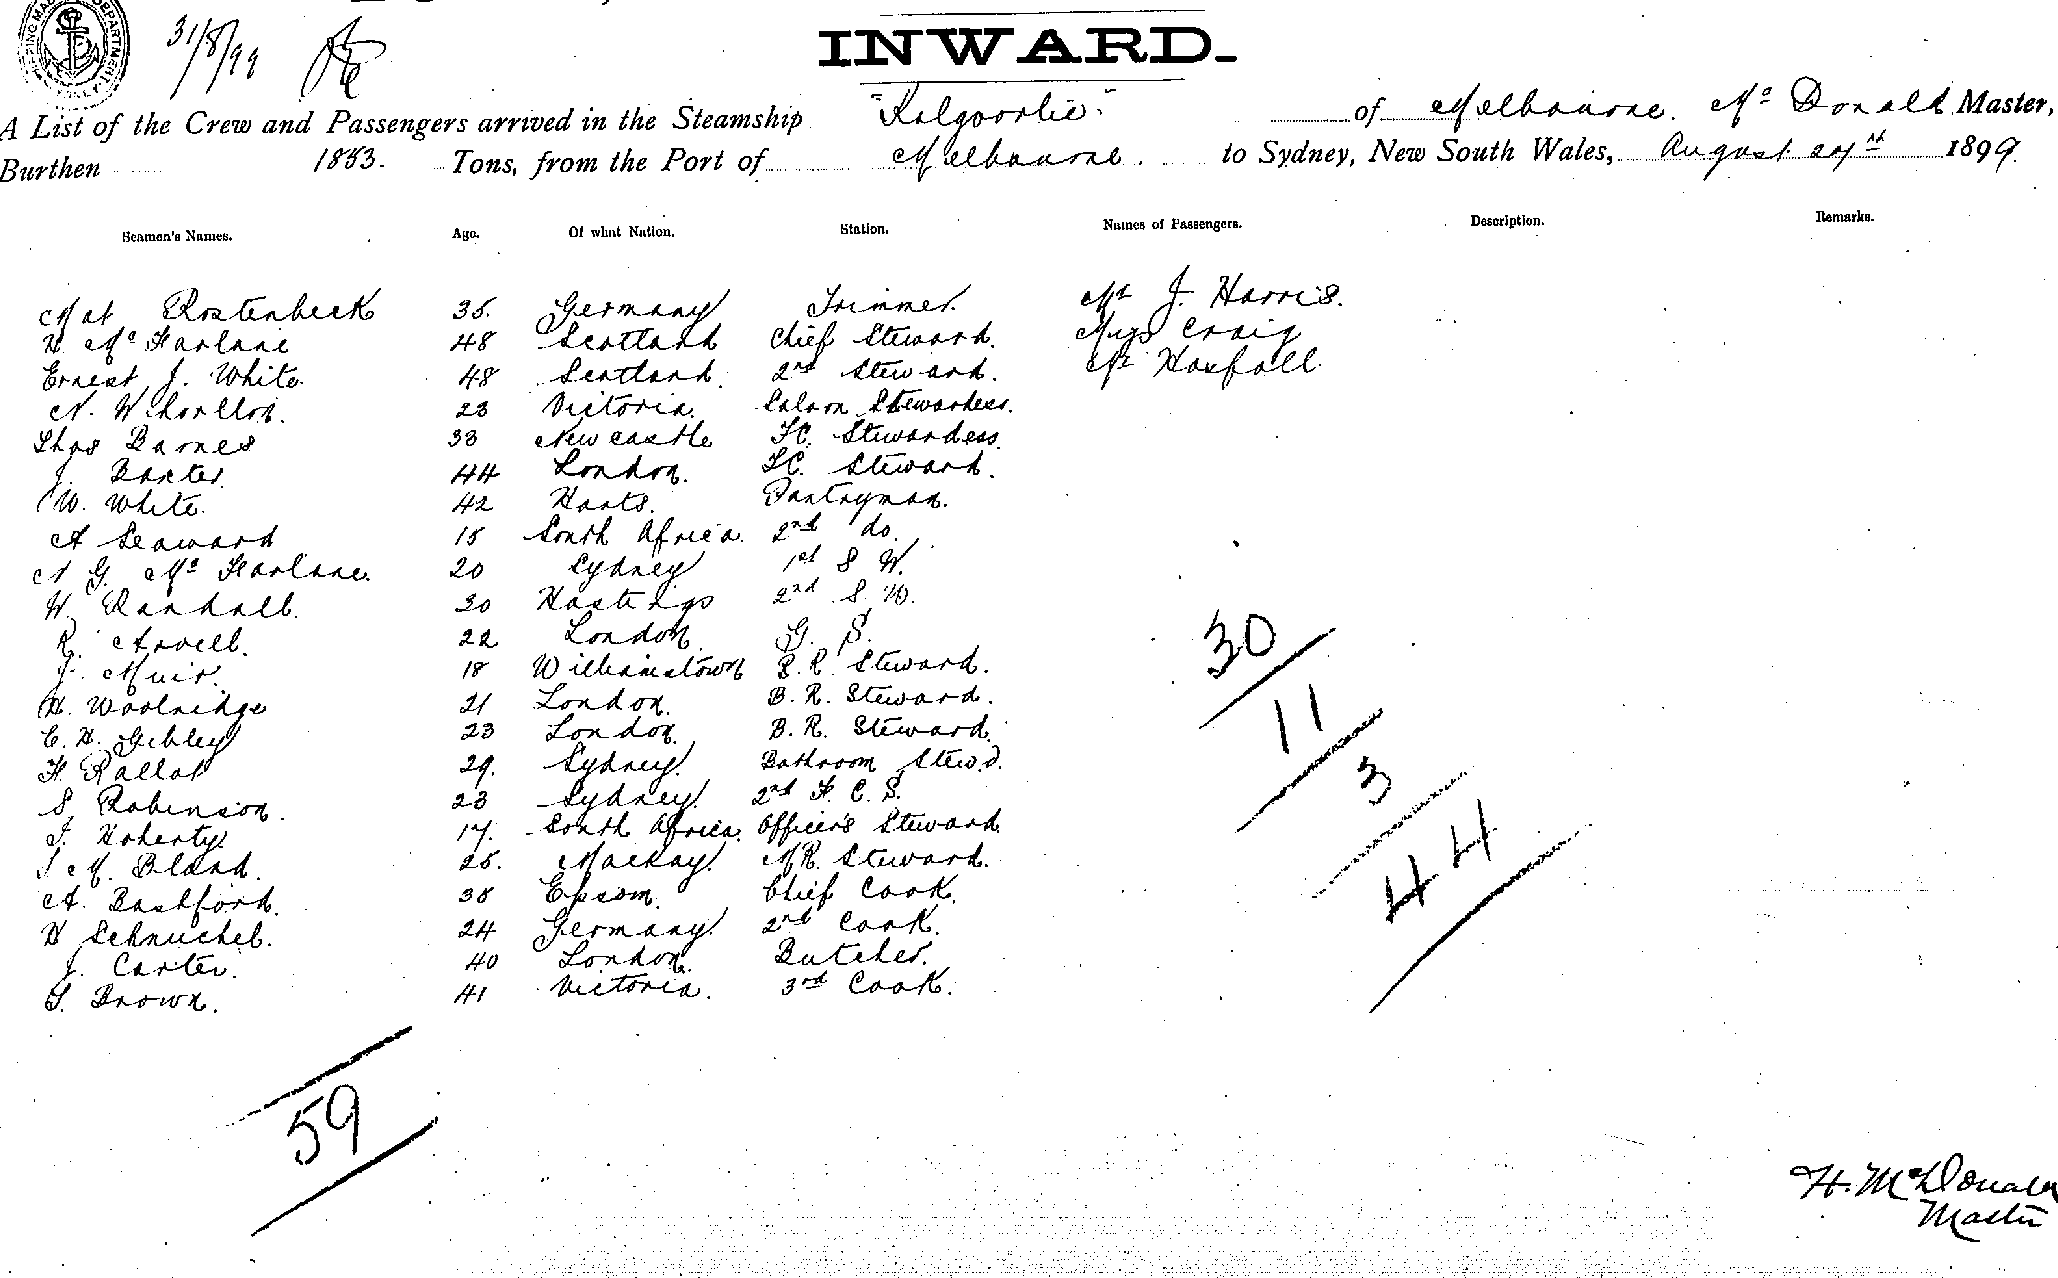 SHIPPING MASTER'S DEPARTMENT
31/8/99
INWARD.
A List of the Crew and Passengers arrived in the Steamship "Kalgoorlie" of Melbourne. Mc Donald Master,
Burthen 1853. Tons, from the Port of Melbourne. to Sydney, New South Wales, August 1899
Seamen's Names. Age. Of what Nation. Station. Names of Passengers. Description. Remarks.
Mat Rostenbeck 35. Germany Trimmer. Mr J. Harris.
H Mc Farlane 48 Scotland Chief Steward. Miss Craig
Ernest J. White. 48 Scotland. 2nd Steward. Mr Horsfall.
23 Victoria. Saloon Stewardess.
Thos Barnes 33 Newcastle F.C. Stewardess.
J. Baxter. 44 London. F.C. Steward.
W. White. 42 Hants. Pantryman.
A Seaward 15 South Africa. 2nd do.
A G. Mc Farlane. 20 Sydney 1st S W.
W. Randall. 30 Hastings 2nd S. W.
R. Arvell. 22 London G. S.
J. Muir. 18 Williamstown B. R. Steward.
H. Woolridge 21 London. B. R. Steward.
C. H. Gibley 23 London. B. R. Steward.
H. Rallat 29. Sydney. Bathroom Stewd.
S. Robinson. 23 Sydney. 2nd F. C. S.
J. Doherty 17. South Africa. Officer's Steward.
J M. Bland. 25. Mackay. MR. Steward.
A. Bashford. 38 Epsom. Chief Cook.
H Schnuchel. 24 Germany. 2nd Cook.
J. Carter. 40 London. Butcher.
S. Brown. 41 Victoria. 3rd Cook.
30
11
3
44
59
H. McDonald
Master